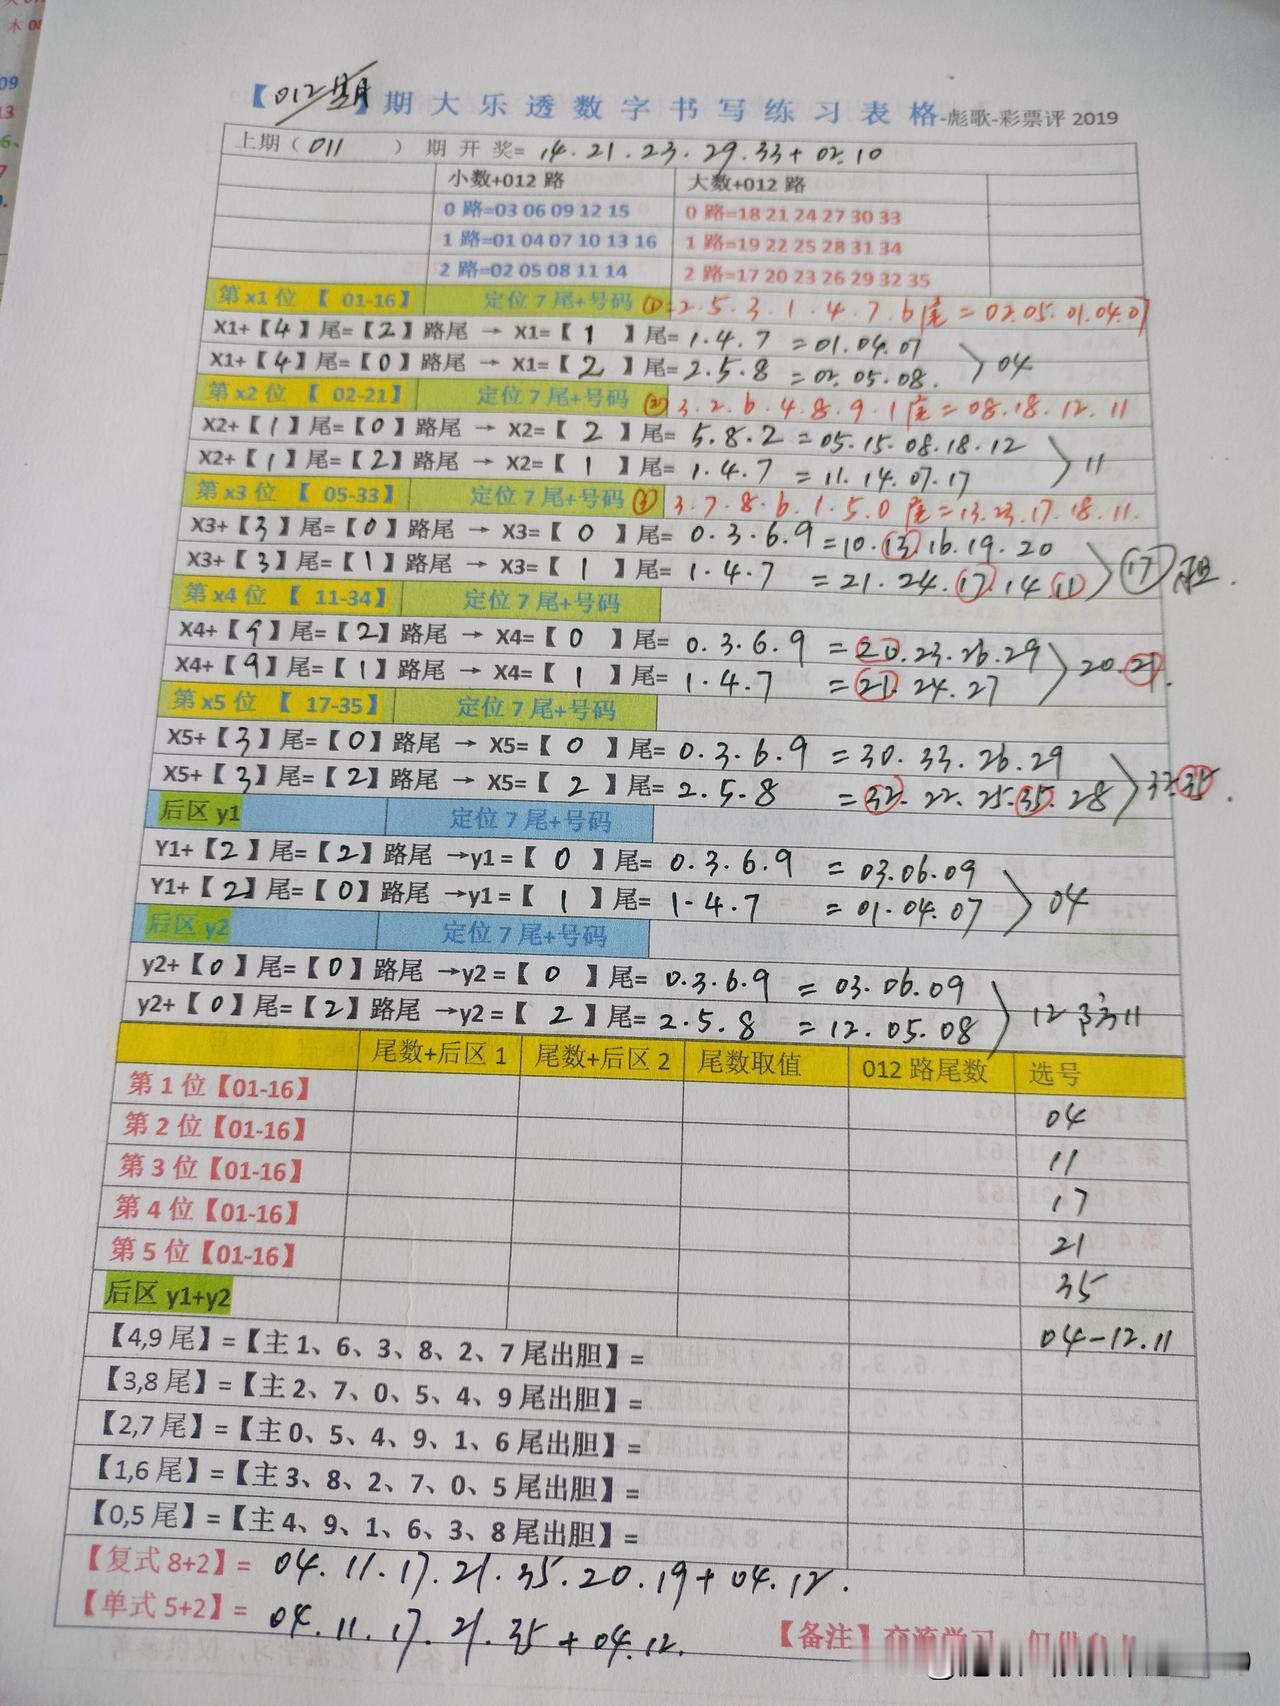 【012期】期大乐透数字书写练习表格-彪歌-彩票评 2019
上期（011）期开奖= 14.21.23.29.33+02.10
小数+012 路 大数+012 路
0 路=03 06 09 12 15 0 路=18 21 24 27 30 33
1 路=01 04 07 10 13 16 1 路=19 22 25 28 31 34
2 路=02 05 08 11 14 2 路=17 20 23 26 29 32 35
第 x1 位 【 01-16】 定位 7 尾+号码 ①=2.5.3.1.4.7.6尾=02.05.01.04.07
X1+【4】尾=【2】路尾 → X1=【 1 】尾= 1.4.7 =01.04.07
X1+【4】尾=【0】路尾 → X1=【 2 】尾= 2.5.8 =02.05.08. 〉04
第 x2 位 【 02-21】 定位 7 尾+号码 ② 3.2.6.4.8.9.1尾=08.18.12.11
X2+【1】尾=【0】路尾 → X2=【 2 】尾= 5.8.2 =05.15.08.18.12
X2+【1】尾=【2】路尾 → X2=【 1 】尾= 1.4.7 =11.14.07.17 〉11
第 x3 位 【 05-33】 定位 7 尾+号码 ③ 3.7.8.6.1.5.0尾=13.23.17.18.11.
X3+【3】尾=【0】路尾 → X3=【 0 】尾= 0.3.6.9 =10.13.16.19.20
X3+【3】尾=【1】路尾 → X3=【 1 】尾= 1.4.7 =21.24.17.14 11 〉17胆.
第 x4 位 【 11-34】 定位 7 尾+号码
X4+【9】尾=【2】路尾 → X4=【 0 】尾= 0.3.6.9 =20.23.26.29
X4+【9】尾=【1】路尾 → X4=【 1 】尾= 1.4.7 =21.24.27 〉20.21.
第 x5 位 【 17-35】 定位 7 尾+号码
X5+【3】尾=【0】路尾 → X5=【 0 】尾= 0.3.6.9 =30.33.26.29
X5+【3】尾=【2】路尾 → X5=【 2 】尾= 2.5.8 =32.22.25.35.28 〉32.35.
后区 y1 定位 7 尾+号码
Y1+【2】尾=【2】路尾 →y1 =【 0 】尾= 0.3.6.9 = 03.06.09
Y1+【2】尾=【0】路尾 →y1 =【 1 】尾= 1.4.7 =01.04.07 〉04
后区 y2 定位 7 尾+号码
y2+【0】尾=【0】路尾 →y2 =【 0 】尾= 0.3.6.9 = 03.06.09
y2+【0】尾=【2】路尾 →y2 =【 2 】尾= 2.5.8 =12.05.08 〉12防11
尾数+后区 1 尾数+后区 2 尾数取值 012 路尾数 选号
第 1 位【01-16】 04
第 2 位【01-16】 11
第 3 位【01-16】 17
第 4 位【01-16】 21
第 5 位【01-16】 35
后区 y1+y2 04-12.11
【4,9 尾】=【主 1、6、3、8、2、7 尾出胆】=
【3,8 尾】=【主 2、7、0、5、4、9 尾出胆】=
【2,7 尾】=【主 0、5、4、9、1、6 尾出胆】=
【1,6 尾】=【主 3、8、2、7、0、5 尾出胆】=
【0,5 尾】=【主 4、9、1、6、3、8 尾出胆】=
【复式 8+2】= 04.11.17.21.35.20.19+04.12.
【单式 5+2】= 04.11.17.21.35+04.12.
【备注】交流学习